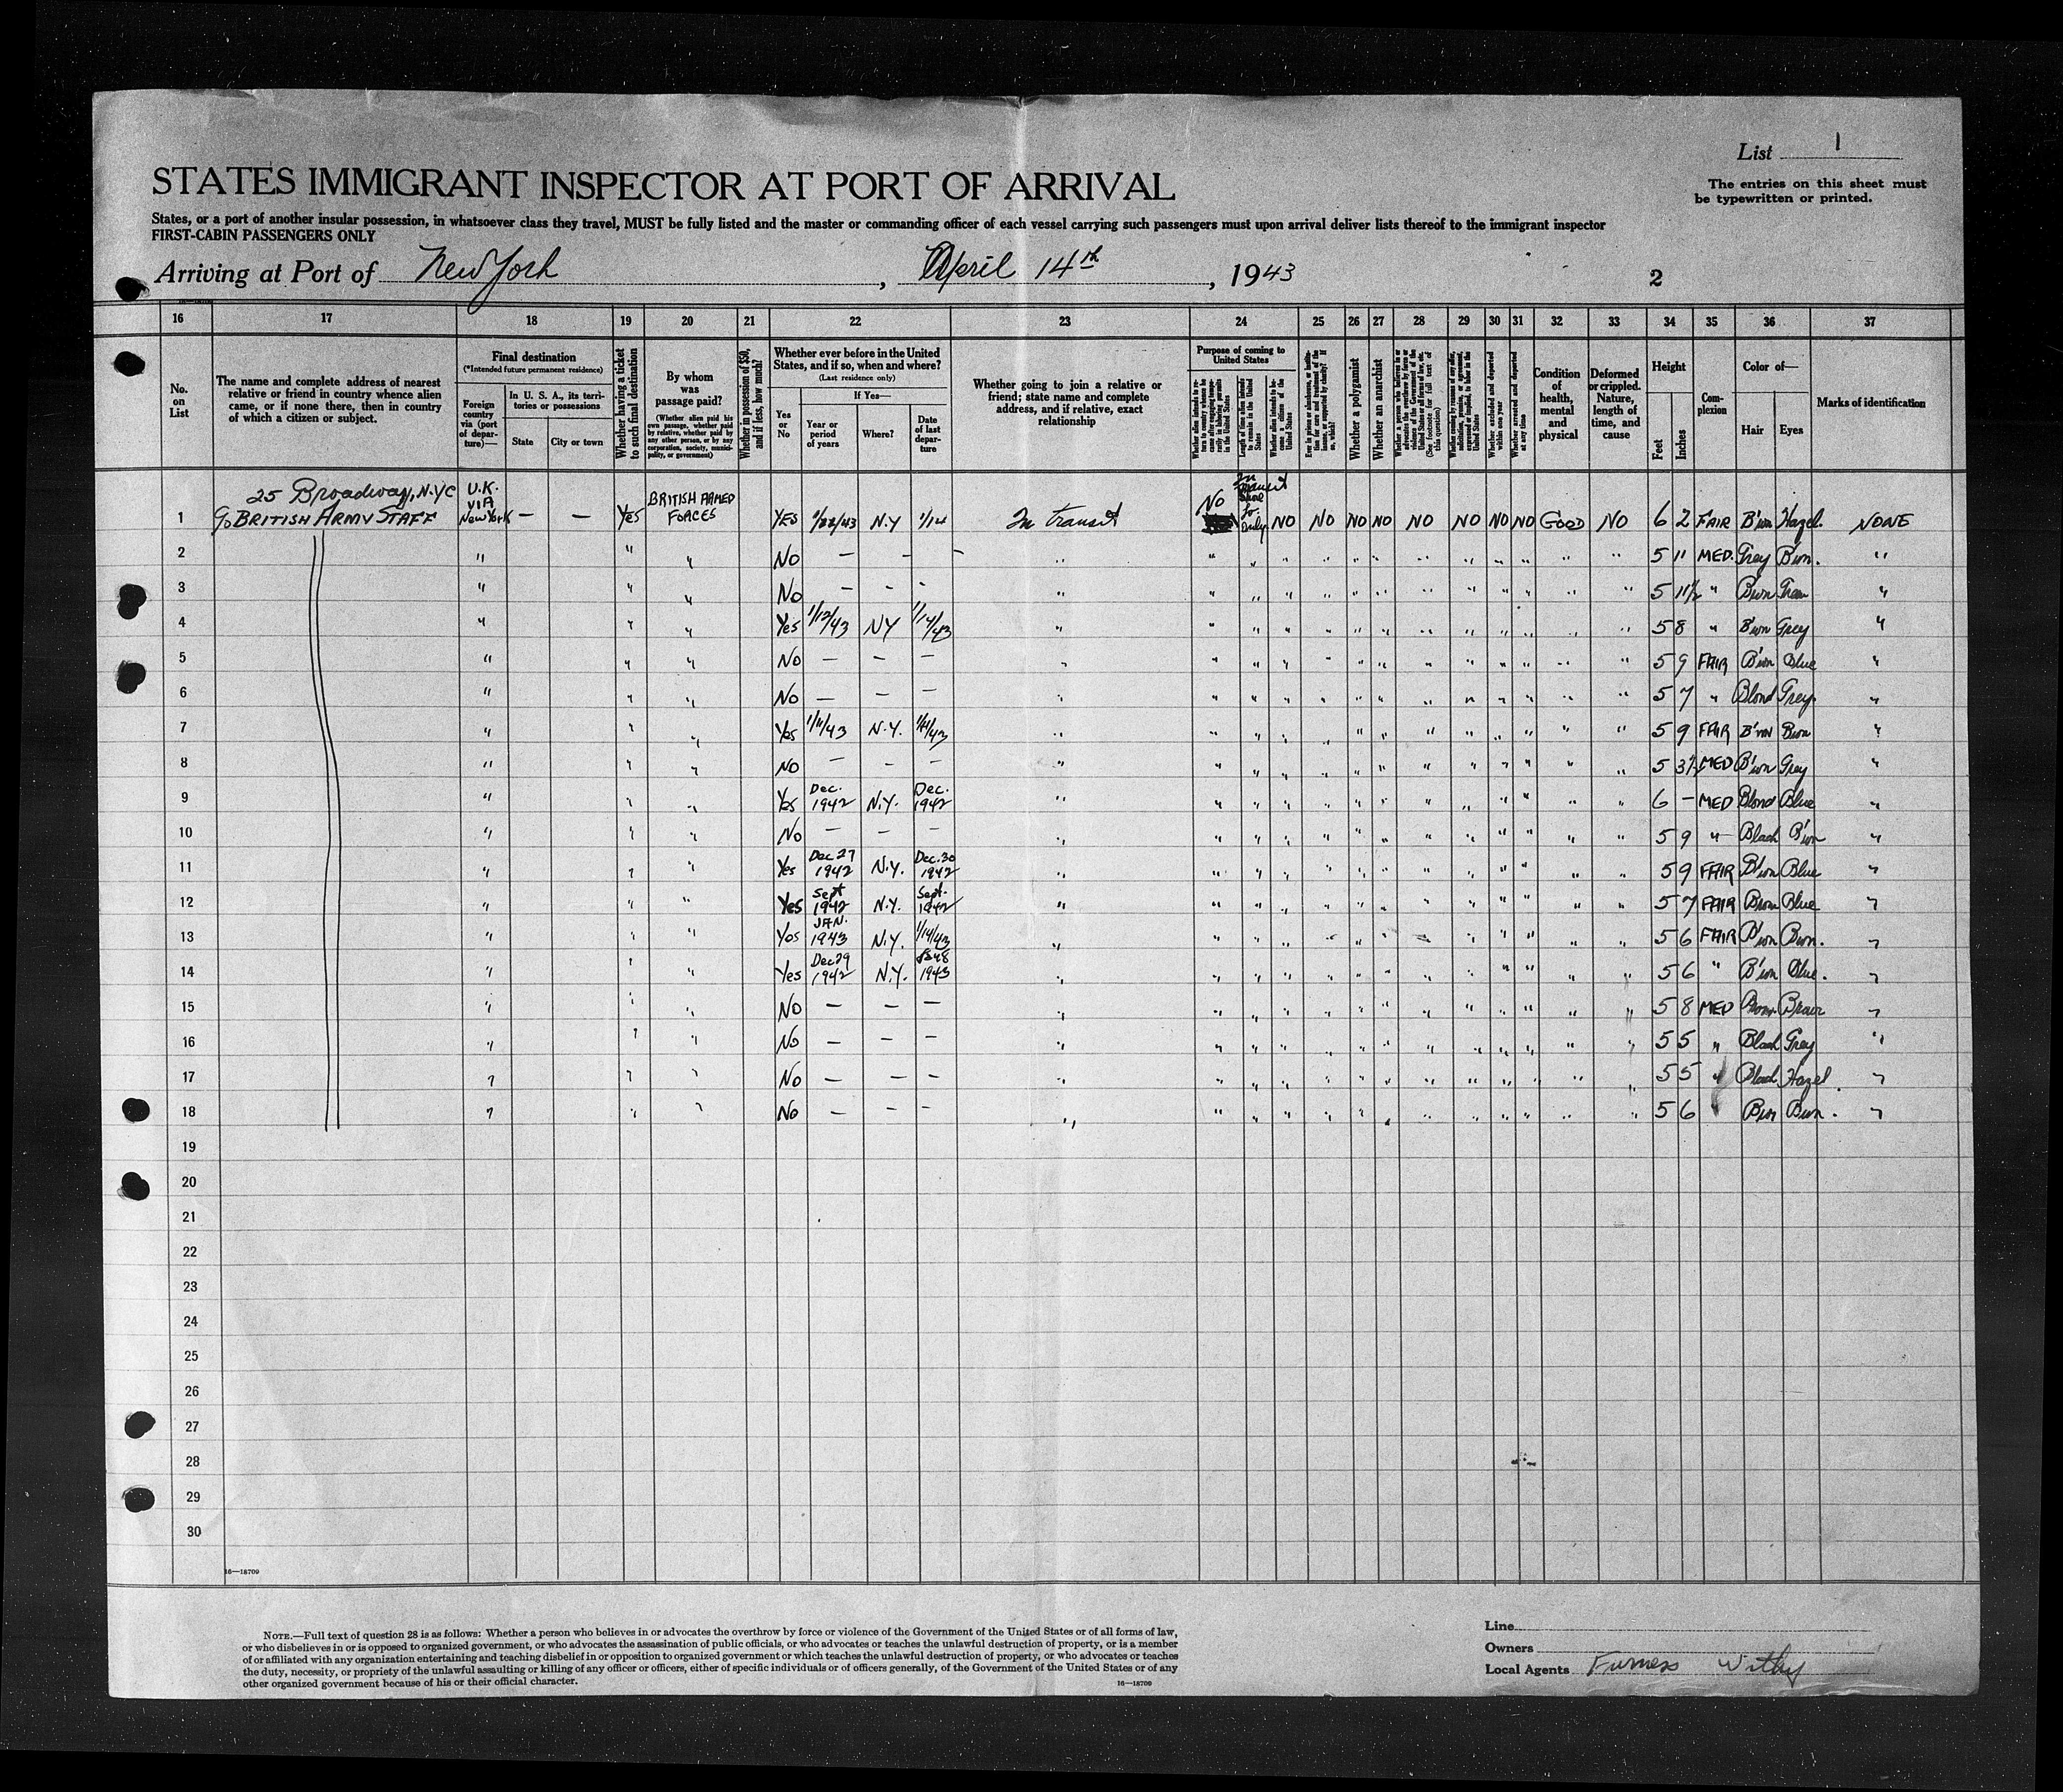 List 1
The entries on this sheet must
be typewritten or printed.
STATES IMMIGRANT INSPECTOR AT PORT OF ARRIVAL
States, or a port of another insular possession, in whatsoever class they travel, MUST be fully listed and the master or commanding officer of each vessel carrying such passengers must upon arrival deliver lists thereof to the immigrant inspector
FIRST-CABIN PASSENGERS ONLY
Arriving at Port of New York, April 14th, 1943 2
16 17 18 19 20 21 22 23 24 25 26 27 28 29 30 31 32 33 34 35 36 37
No. on List
The name and complete address of nearest relative or friend in country whence alien came, or if none there, then in country of which a citizen or subject.
Final destination
(*Intended future permanent residence)
Foreign country via (port of departure)—
In U. S. A., its territories or possessions
State
City or town
Whether having a ticket to such final destination
By whom was passage paid?
(Whether alien paid his own passage, whether paid by relative, whether paid by any other person, or by any corporation, society, municipality, or government)
Whether in possession of $50, and if less, how much?
Whether ever before in the United States, and if so, when and where?
(Last residence only)
Yes or No
If Yes—
Year or period of years
Where?
Date of last departure
Whether going to join a relative or friend; state name and complete address, and if relative, exact relationship
Purpose of coming to United States
Length of time alien intends to remain in the United States
Whether alien intends to become a citizen of the United States
Whether a polygamist
Whether an anarchist
Whether excluded and deported within one year
Whether arrested and deported at any time
Condition of health, mental and physical
Deformed or crippled. Nature, length of time, and cause
Height
Feet
Inches
Complexion
Color of—
Hair
Eyes
Marks of identification
1 25 Broadway, N.Y.C c/o BRITISH ARMY STAFF U.K. VIA New York — — Yes BRITISH ARMED FORCES YES 1/22/43 N.Y 1/14 In transit No In transit Only NO NO NO NO NO NO NO NO GOOD NO 6 2 FAIR B'wn Hazel. NONE
2 " " " No — - - " " " " " " " " " " " " " 5 11 MED. Grey B'wn. "
3 " " " No — - - " " " " " " " " " " " " " 5 11½ " B'wn "
4 " " " Yes 1/12/43 NY 1/14/43 " " " " " " " " " " " " " 5 8 " B'wn Grey "
5 " " " No — — — " " " " " " " " " " " " " 5 9 FAIR B'wn Blue "
6 " " " No — — — " " " " " " " " " " " " " 5 7 " Blond Grey. "
7 " " " Yes 1/11/43 N.Y. " " " " " " " " " " " " " 5 9 FAIR B'wn Bwn "
8 " " " No — - — " " " " " " " " " " " " " 5 3½ MED B'wn Grey "
9 " " " Yes Dec. 1942 N.Y. Dec. 1942 " " " " " " " " " " " " " 6 — MED Blond Blue "
10 " " " No — — — " " " " " " " " " " " " " 5 9 " Black B'wn "
11 " " " Yes Dec 27 1942 N.Y. Dec. 30 1942 " " " " " " " " " " " " " 5 9 FAIR B'wn Blue "
12 " " " Yes Sept 1942 N.Y. Sept. 1942 " " " " " " " " " " " " " 5 7 FAIR Brown Blue "
13 " " " Yes JAN. 1943 N.Y. 1/14/43 " " " " " " " " " " " " " 5 6 FAIR B'wn Bwn. "
14 " " " Yes Dec 29 1942 N.Y. 1943 " " " " " " " " " " " " " 5 6 " B'wn Blue. "
15 " " " No — — — " " " " " " " " " " " " " 5 8 MED Brown "
16 " " " No — — — " " " " " " " " " " " " " 5 5 " Black Grey "
17 " " " No — — — " " " " " " " " " " " " " 5 5 " Black Hazel. "
18 " " " No — — — " " " " " " " " " " " " " 5 6 Bwn Bwn. "
19
20
21
22
23
24
25
26
27
28
29
30
16—18709
NOTE.—Full text of question 28 is as follows: Whether a person who believes in or advocates the overthrow by force or violence of the Government of the United States or of all forms of law,
or who disbelieves in or is opposed to organized government, or who advocates the assassination of public officials, or who advocates or teaches the unlawful destruction of property, or is a member
of or affiliated with any organization entertaining and teaching disbelief in or opposition to organized government or which teaches the unlawful destruction of property, or who advocates or teaches
the duty, necessity, or propriety of the unlawful assaulting or killing of any officer or officers, either of specific individuals or of officers generally, of the Government of the United States or of any
other organized government because of his or their official character.
16—18709
Line
Owners
Local Agents Furness Withy